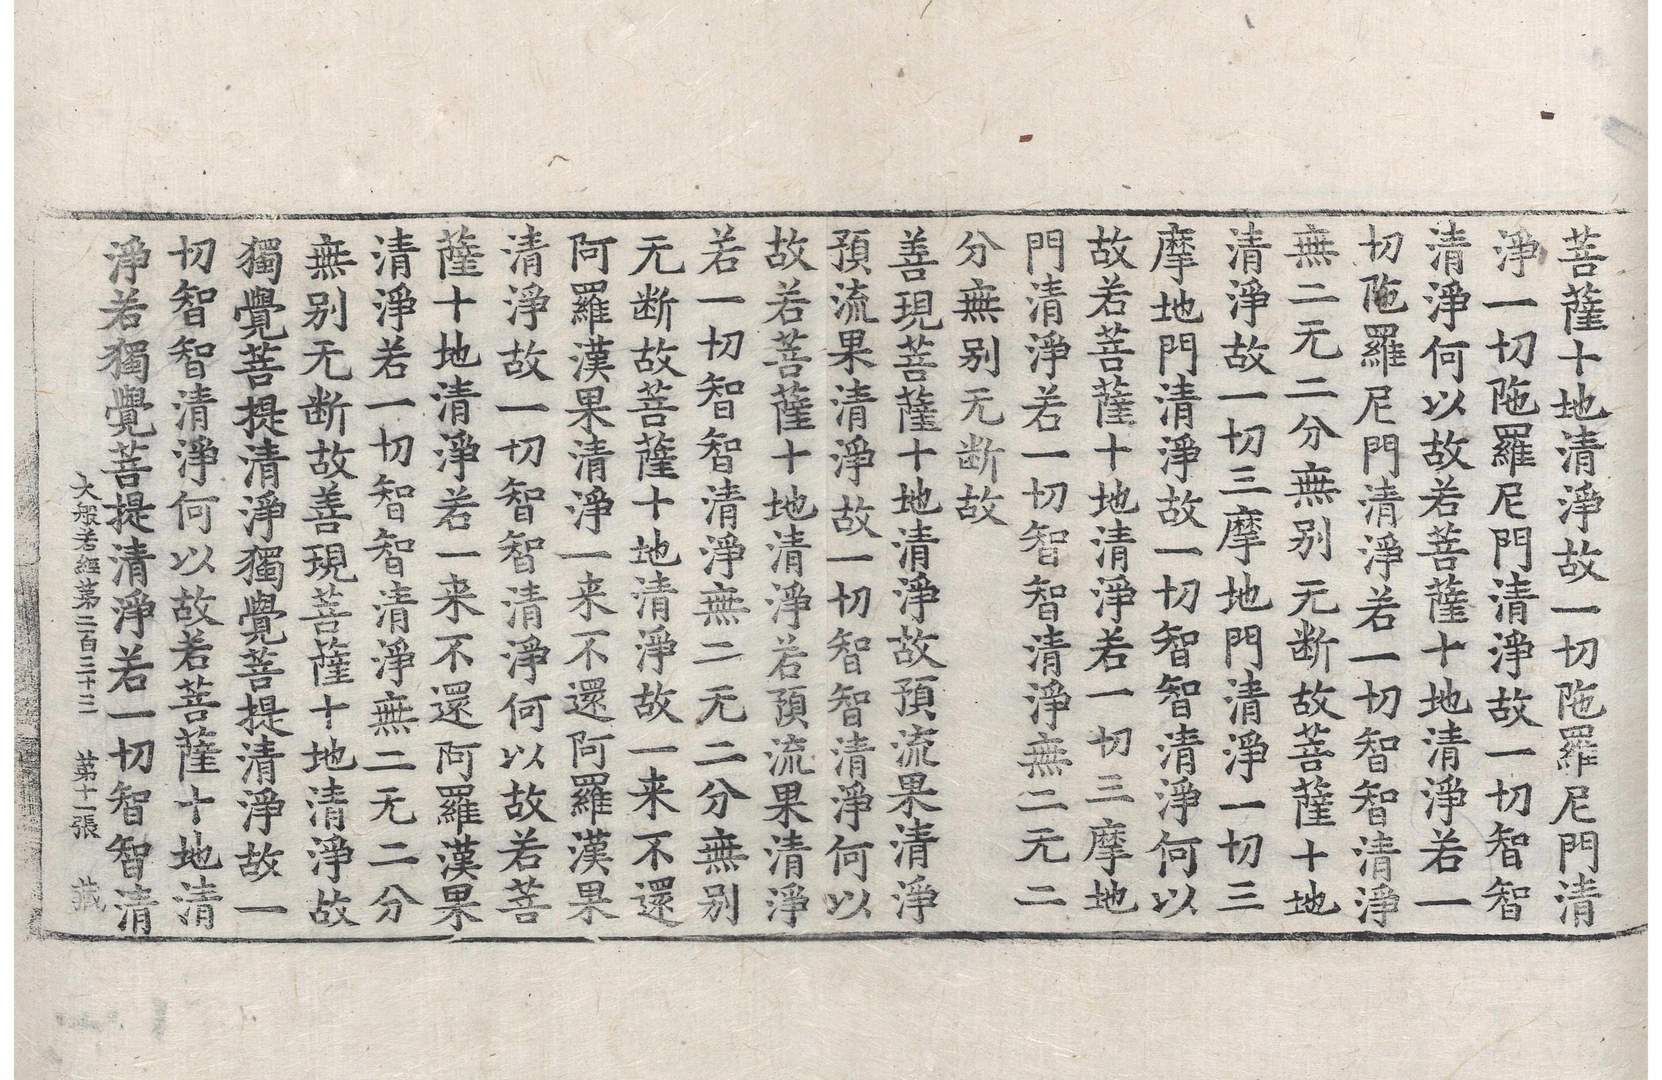 菩薩十地清淨故一切陁羅尼門清
淨一切陁羅尼門清淨故一切智智
清淨何以故若菩薩十地清淨若一
切陁羅尼門清淨若一切智智清淨
無二无二分無别无断故菩薩十地
清淨故一切三摩地門清淨一切三
摩地門清淨故一切智智清淨何以
故若菩薩十地清淨若一切三摩地
門清淨若一切智智清淨無二无二
分無别无断故
善現菩薩十地清淨故預流果清淨
預流果清淨故一切智智清淨何以
故若菩薩十地清淨若預流果清淨
若一切智智清淨無二无二分無别
无断故菩薩十地清淨故一来不還
阿羅漢果清淨一来不還阿羅漢果
清淨故一切智智清淨何以故若菩
薩十地清淨若一来不還阿羅漢果
清淨若一切智智清淨無二无二分
無别无断故善現菩薩十地清淨故
獨覺菩提清淨獨覺菩提清淨故一
切智智清淨何以故若菩薩十地清
淨若獨覺菩提清淨若一切智智清
大般若經第二百三十三 苐十一張 藏